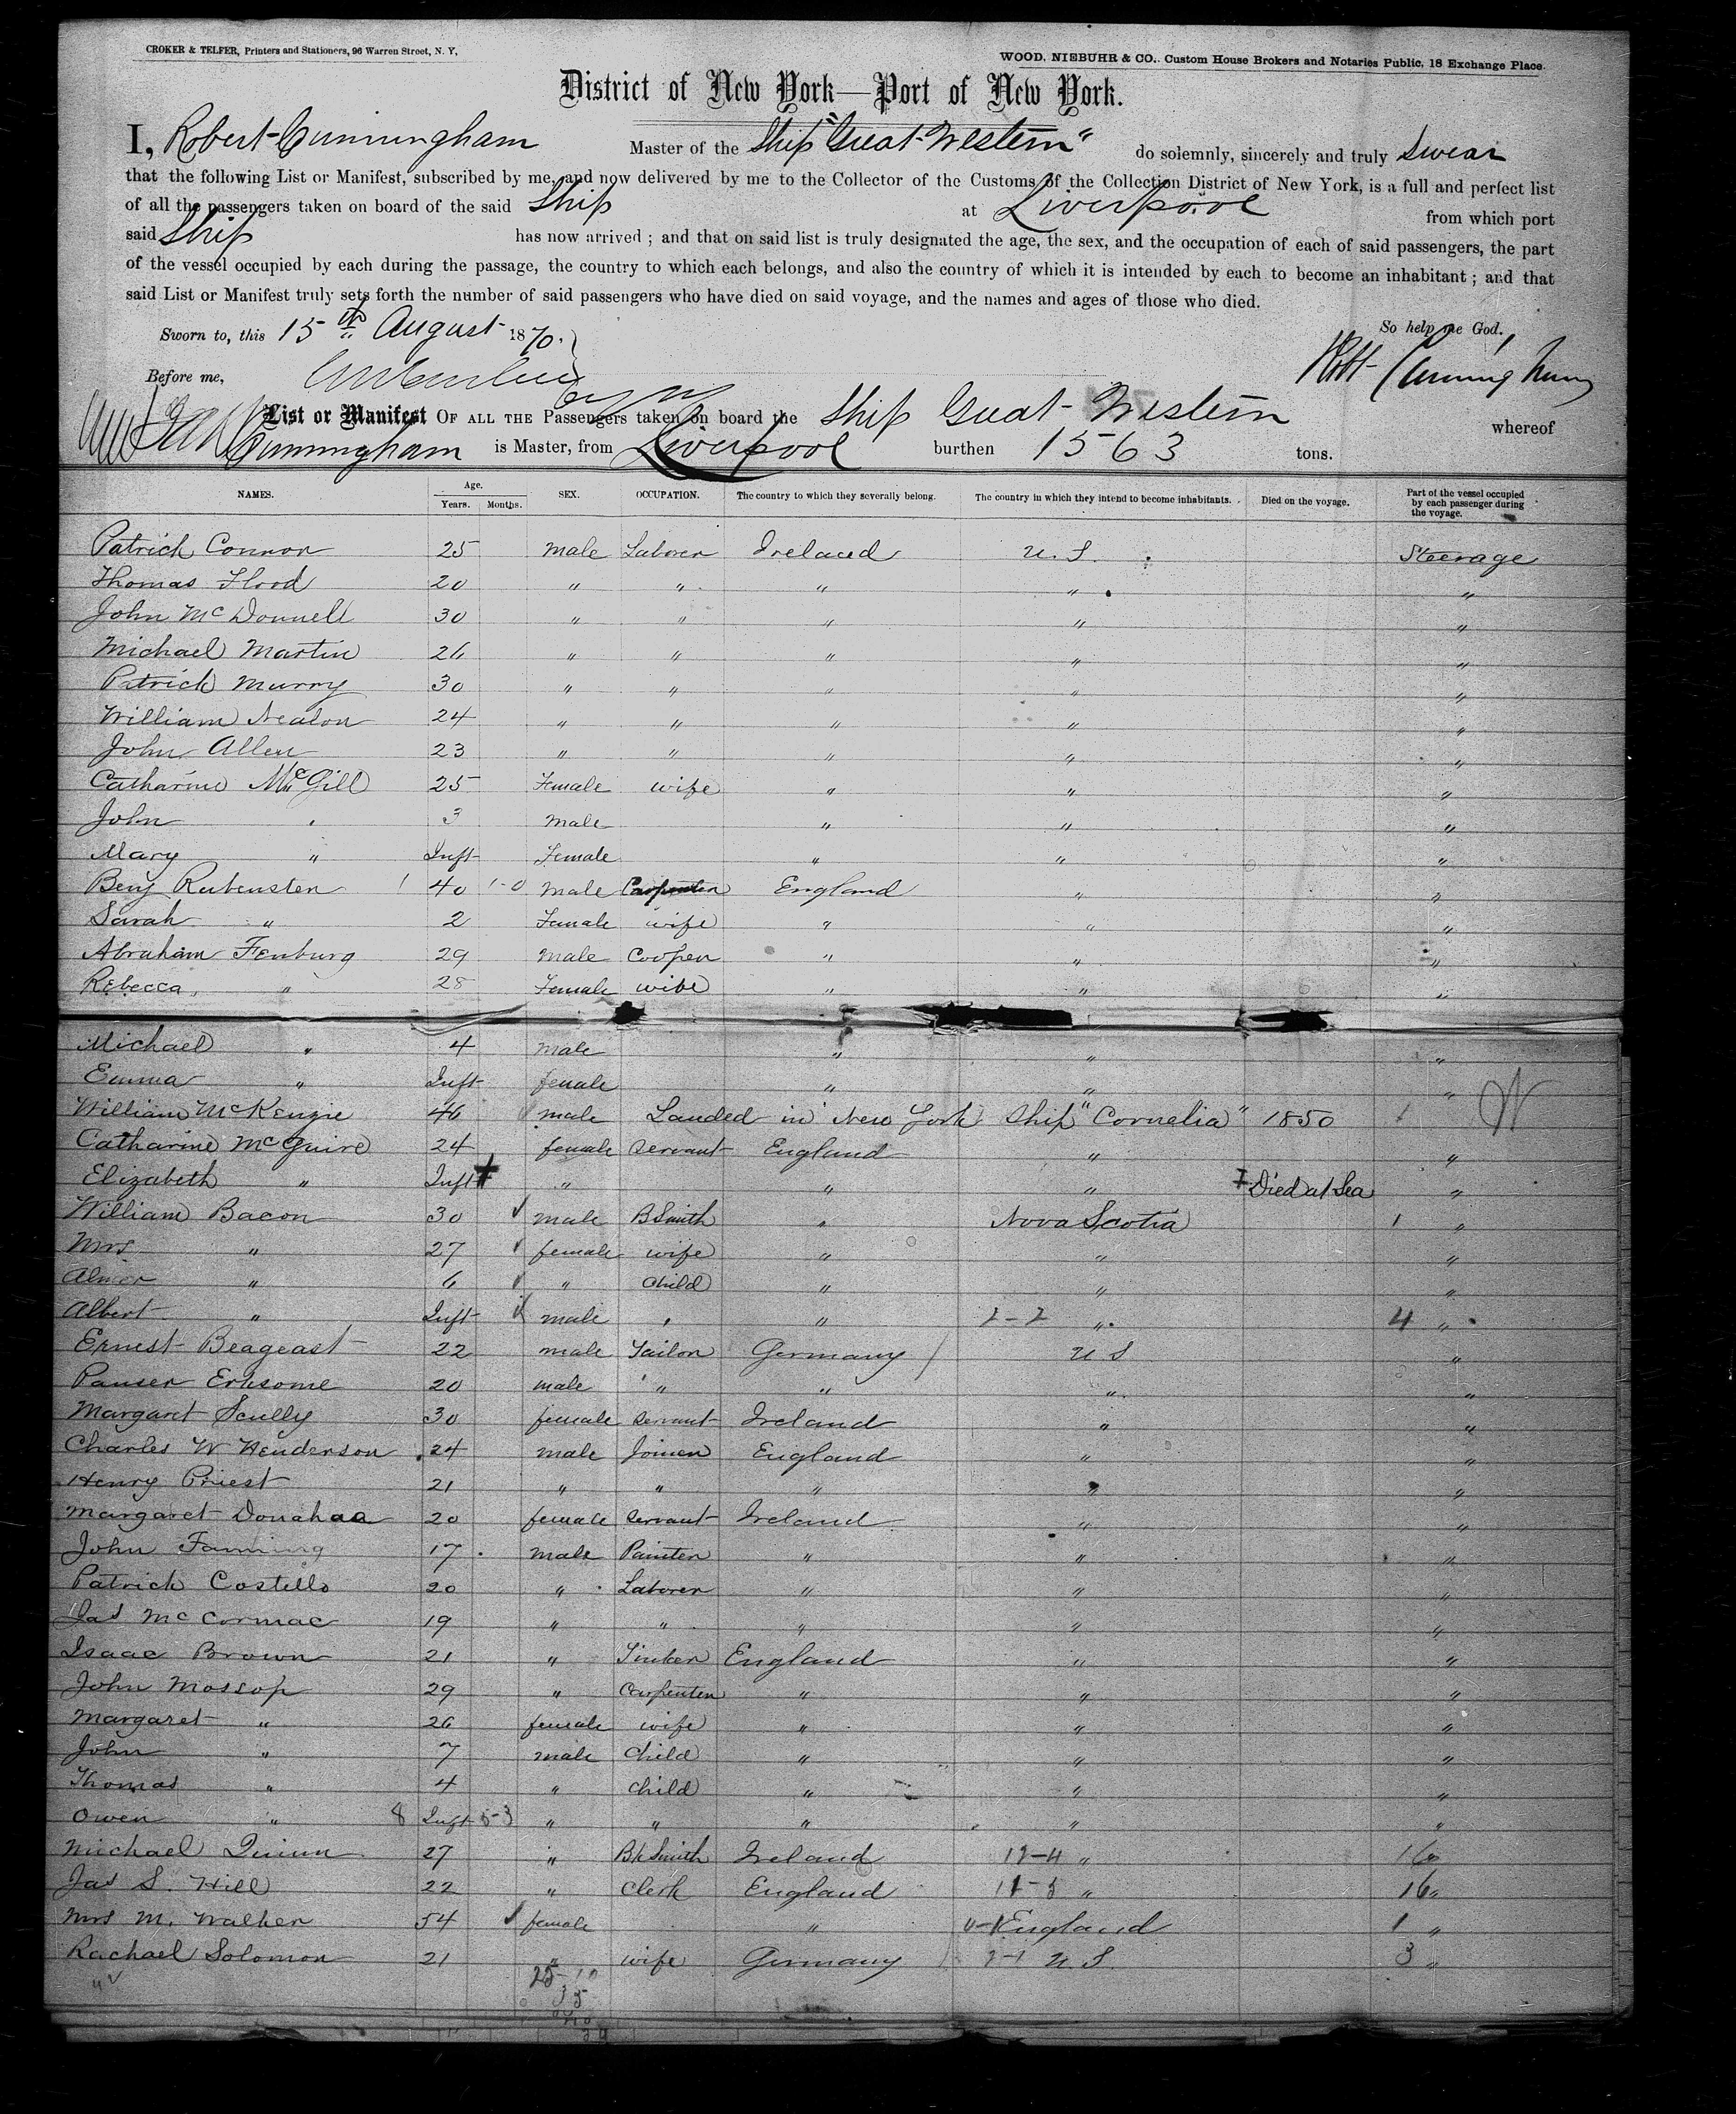 CROKER & TELFER, Printers and Stationers, 96 Warren Street, N. Y.
WOOD, NIEBUHR & CO., Custom House Brokers and Notaries Public, 18 Exchange Place.
District of New York—Port of New York.
I, Robert Cunningham Master of the Ship "Great Western" do solemnly, sincerely and truly swear
that the following List or Manifest, subscribed by me, and now delivered by me to the Collector of the Customs of the Collection District of New York, is a full and perfect list
of all the passengers taken on board of the said Ship at Liverpool from which port
said Ship has now arrived ; and that on said list is truly designated the age, the sex, and the occupation of each of said passengers, the part
of the vessel occupied by each during the passage, the country to which each belongs, and also the country of which it is intended by each to become an inhabitant ; and that
said List or Manifest truly sets forth the number of said passengers who have died on said voyage, and the names and ages of those who died.
Sworn to, this 15th August 1870. So help me God,
Before me, Robt Cunningham
List or Manifest OF ALL THE Passengers taken on board the Ship Great Western whereof
Cunningham is Master, from Liverpool burthen 1563 tons.
NAMES. Age. Years. Months. SEX. OCCUPATION. The country to which they severally belong. The country in which they intend to become inhabitants. Died on the voyage. Part of the vessel occupied by each passenger during the voyage.
Patrick Connor 25 male Laborer Ireland U.S. Steerage
Thomas Flood 20 " " " " "
John McDonnell 30 " " " " "
Michael Martin 26 " " " " "
Patrick Murry 30 " " " " "
William Nealon 24 " " " " "
John Allen 23 " " " " "
Catharine McGill 25 Female wife " " "
John " 3 male " " "
Mary " Inft Female " " "
Benj Rubensten 1 40 1-0 male Carpenter England " "
Sarah " 2 Female wife " " "
Abraham Fenburg 29 male Cooper " " "
Rebecca " 28 Female wife " " "
Michael " 4 male " " "
Emma " Inft female " " "
William McKenzie 46 male Landed in New York Ship "Cornelia" 1850
Catharine McGuire 24 female Servant England " "
Elizabeth " Inft " " " Died at Sea "
William Bacon 30 male BSmith " Nova Scotia 1 "
Mrs " 27 female wife " " "
" 6 " child " " "
Albert " Inft male " " 2-2 " 4 "
Ernest Beageast 22 male Tailor Germany U S "
Pauser Erksome 20 male " " " "
Margaret Scully 30 female Servant Ireland " "
Charles W Henderson 24 male Joiner England " "
Henry Priest 21 " " " " "
Margaret Donahaa 20 female Servant Ireland " "
John Fanning 17 male Painter " " "
Patrick Costello 20 " Laborer " " "
Jas McCormac 19 " " " " "
Isaac Brown 21 " England " "
John Mossop 29 " Carpenter " " "
Margaret " 26 female wife " " "
John " 7 male child " " "
Thomas " 4 " child " " "
Owen " 8 Inft 5-3 " " " " "
Michael Quinn 27 " BkSmith Ireland " 16 "
Jas S. Hill 22 " Clerk England " 16 "
Mrs M. Walker 54 female " England 1 "
Rachael Solomon 21 " wife Germany U.S. 3 "